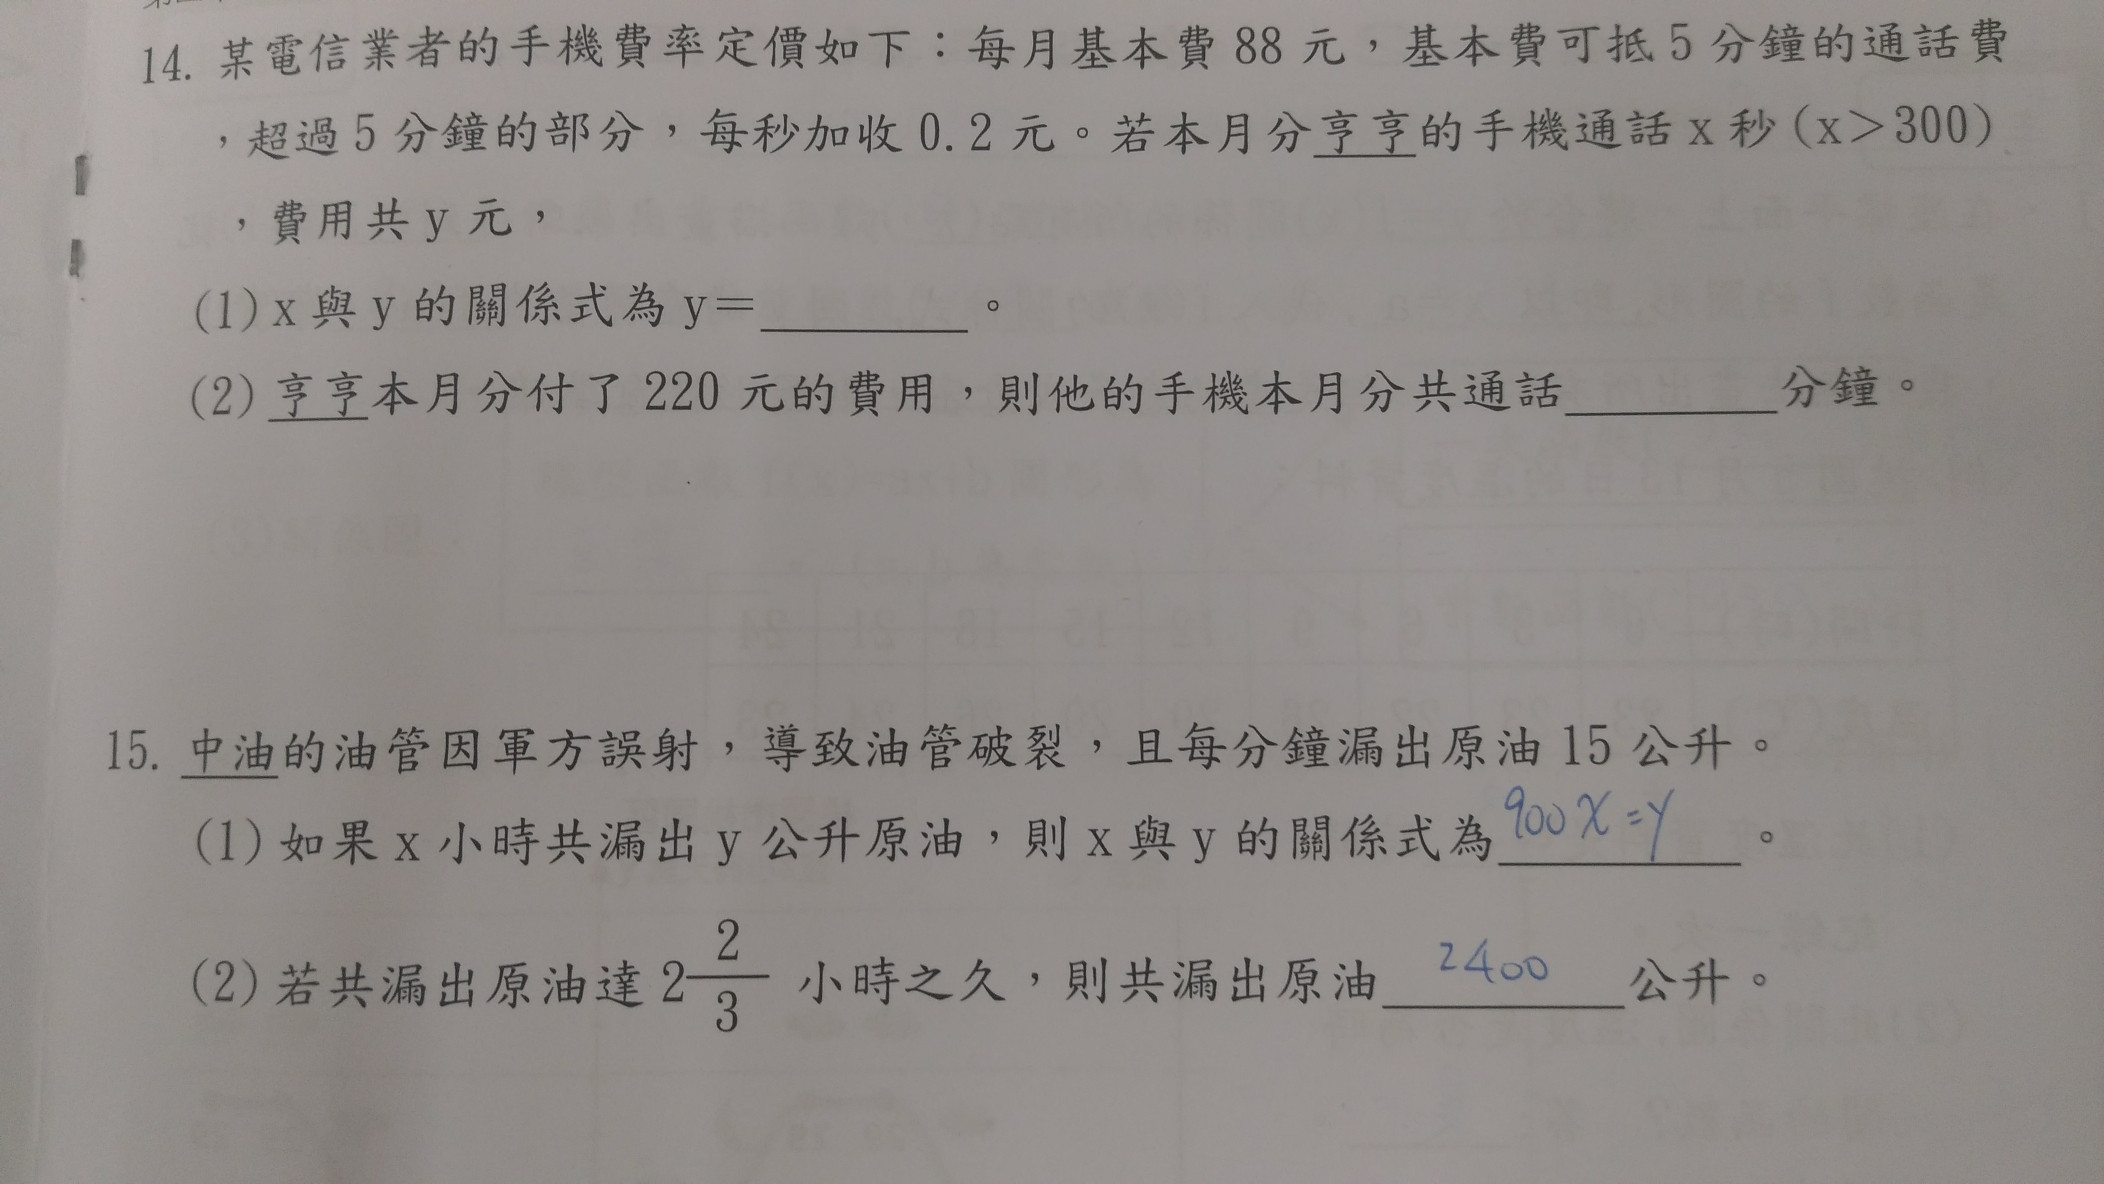 14. 某電信業者的手機費率定價如下：每月基本費 88 元，基本費可抵 5 分鐘的通話費
，超過 5 分鐘的部分，每秒加收 0.2 元。若本月分亨亨的手機通話 x 秒 (x＞300)
，費用共 y 元，
(1) x 與 y 的關係式為 y＝________。
(2) 亨亨本月分付了 220 元的費用，則他的手機本月分共通話________分鐘。
15. 中油的油管因軍方誤射，導致油管破裂，且每分鐘漏出原油 15 公升。
(1) 如果 x 小時共漏出 y 公升原油，則 x 與 y 的關係式為 900x=y 。
(2) 若共漏出原油達 2 2/3 小時之久，則共漏出原油 2400 公升。